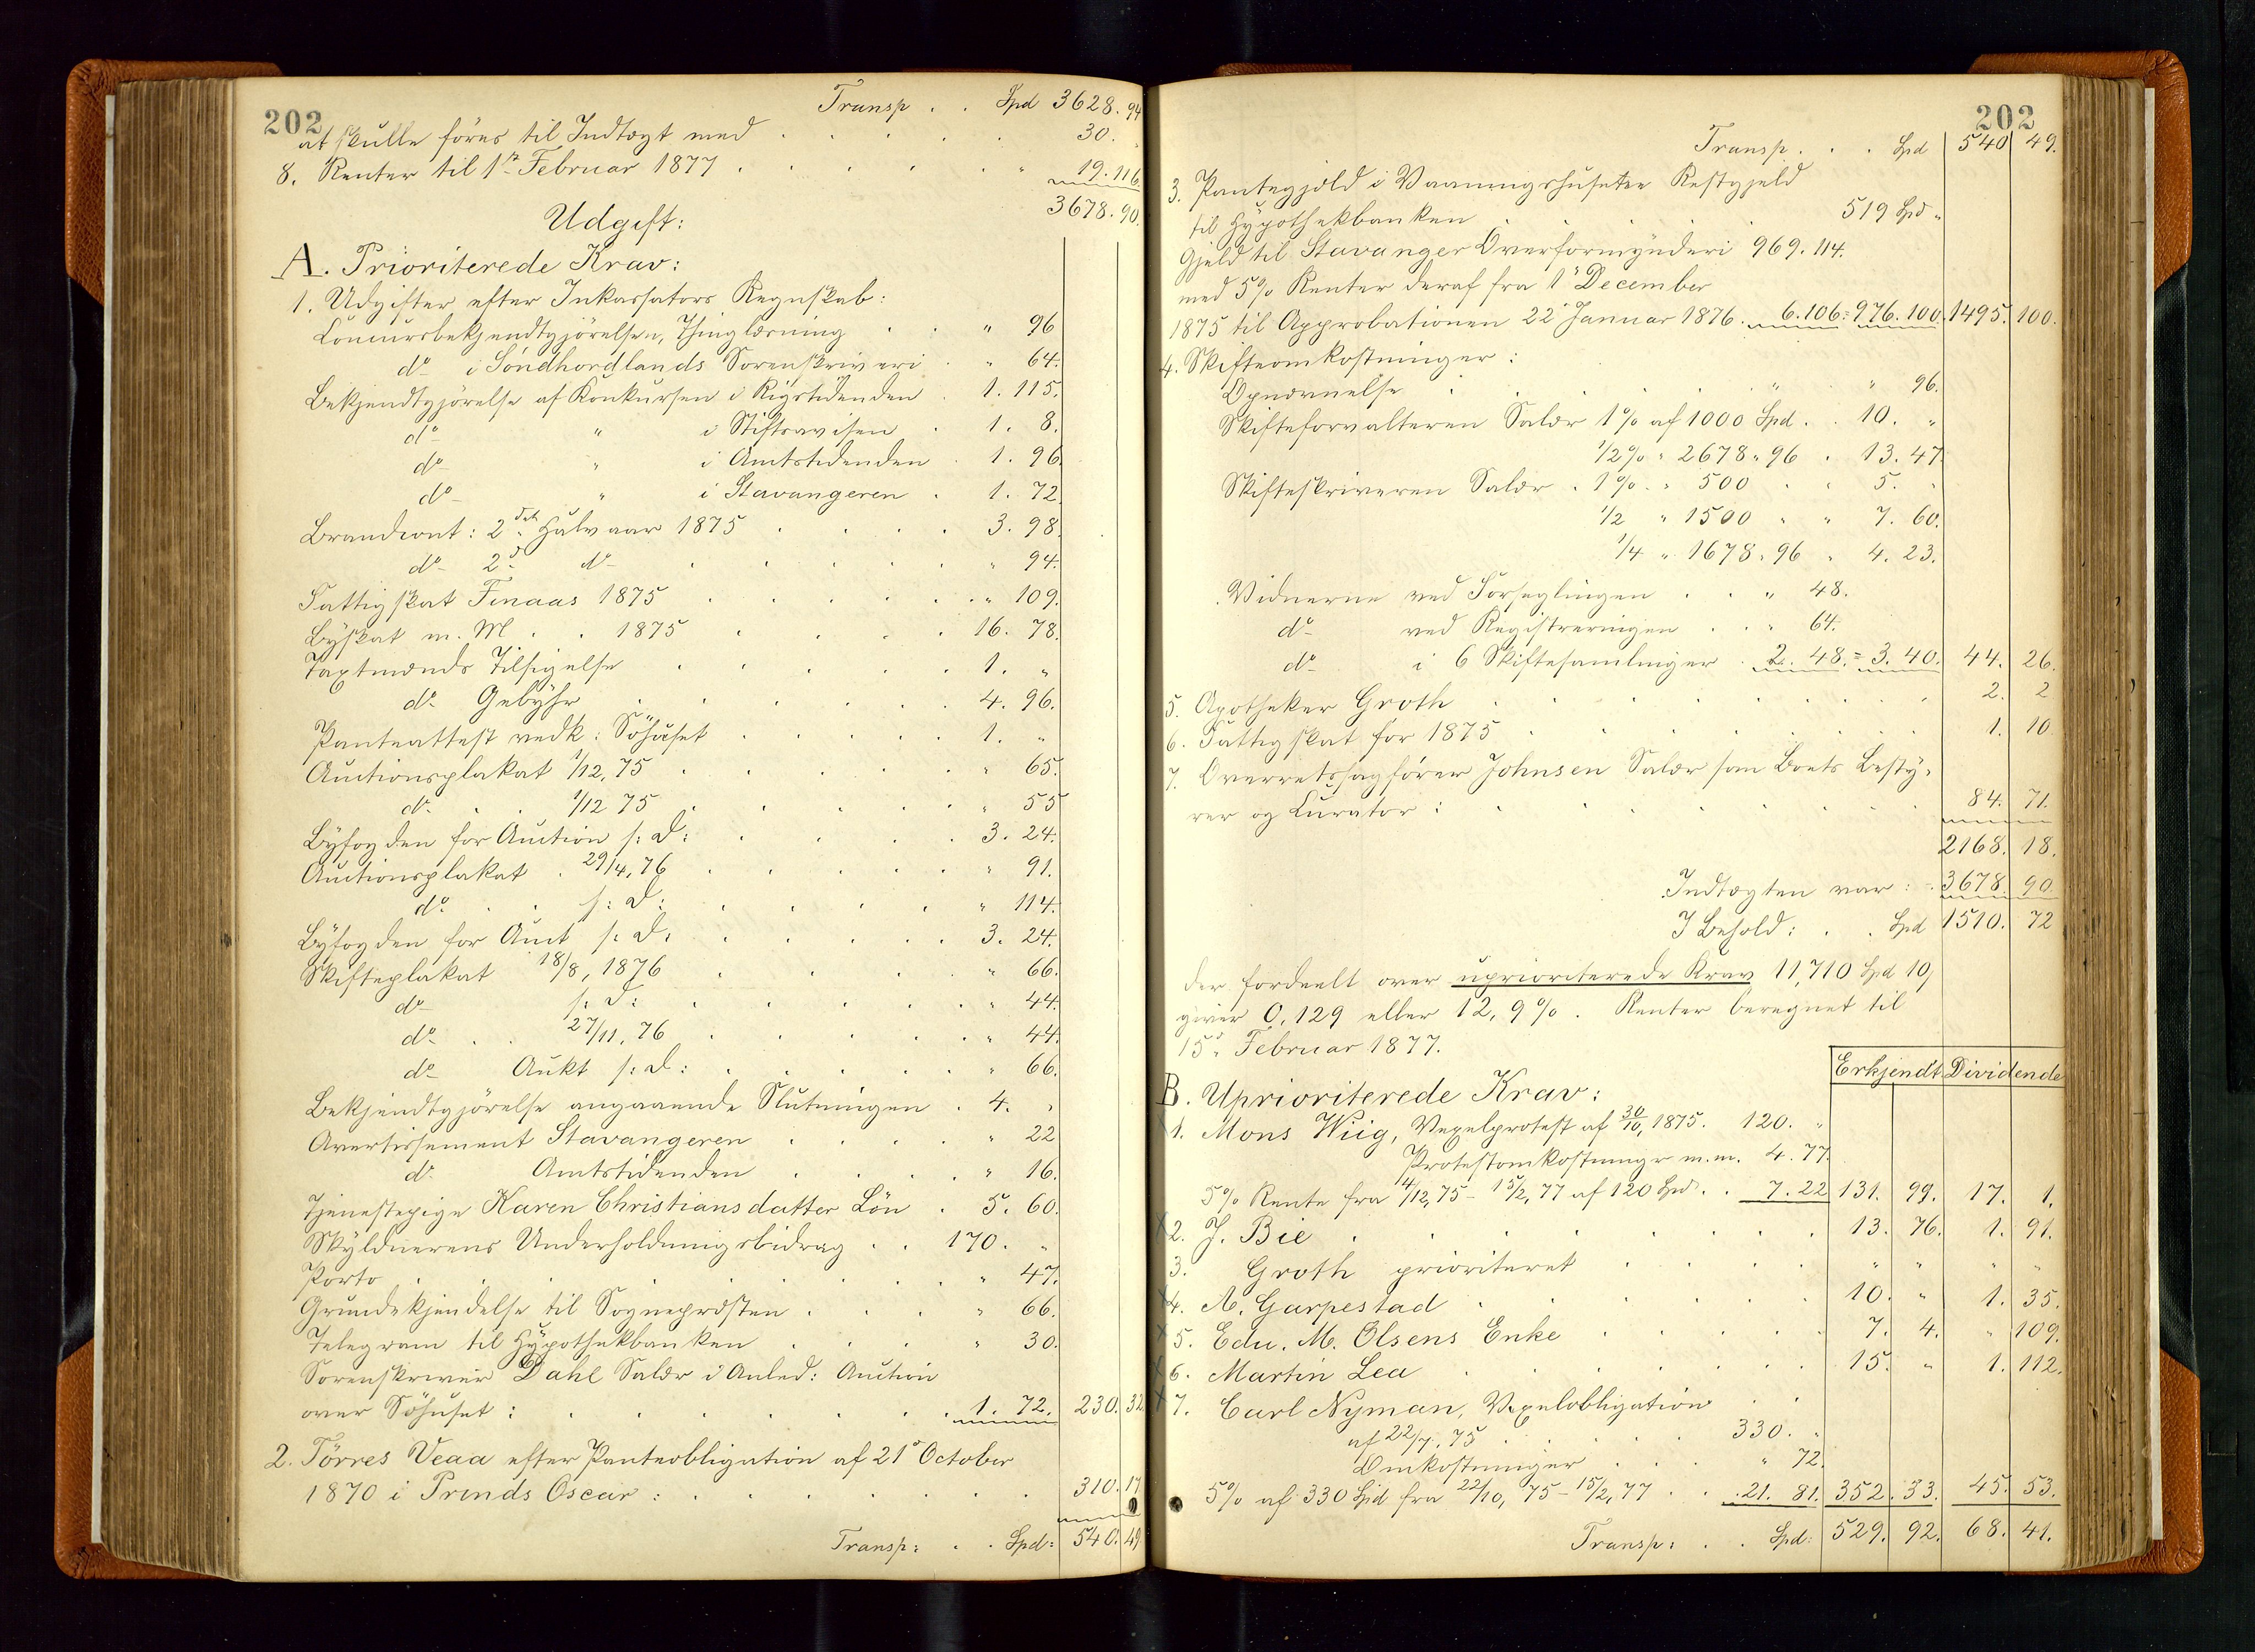 202
Transp . . Spd 3628. 94
at skulle föres til Indtægt med . . . . 30. "
8. Renter til 1ste Februar 1877 . . . . . " 19. 116.
3678. 90.
Udgift:
A. Prioriterede Krav:
1. Udgifter efter Inkassators Regnskab:
Concursbekjendtgjörelsen, Thinglæsning . . " 96
do i Söndhordlands Sorenskriveri . " 64.
Bekjendtgjörelse af Konkursen i Rigstidenden . 1. 115.
do " i Stiftsavisen . 1. 8.
do " i Amtstidenden . 1. 96.
do " i Stavangeren . 1. 72.
Brandcont: 2det Halvaar 1875 . . . . 3. 98.
do 2d do . . . . . " 94.
Fattigskat Finaas 1875 . . . . . . " 109.
Byskat m. M . . 1875 . . . . 16. 78.
Taxtmænds Tilsigelse . . . . . 1. "
do Gebyhr . . . . . . 4. 96.
Panteattest vedk: Söhuset . . . . . 1. "
Auctionsplakat 1/12, 75 . . . . . " 65.
do . . 1/12 75 . . . . . " 55
Byfogden for Auction s: D: . . . . 3. 24.
Auctionsplakat . 29/4, 76 . . . . . " 91.
do . . s: D: . . . . " 114.
Byfogden for Auct s: D: . . . . . 3. 24.
Skifteplakat 18/8, 1876 . . . . " 66.
do s: D: . . . . . " 44.
do . . 27/11, 76 . . . . . " 44.
do Aukt s: D: . . . . . " 66.
Bekjendtgjörelse angaaende Slutningen . 4. "
Avertissement Stavangeren . . . . " 22
do Amtstidenden . . . . " 16.
Tjenestepige Karen Christiansdatter Lön . 5. 60.
Skyldnerens Underholdningsbidrag . . 170. "
Porto . . . . . . . . " 47.
Grundekjendelse til Sognepræsten . . . " 66.
Telegram til Hypothekbanken . . . " 30.
Sorenskriver Dahl Salær i Anled: Auction
over Söhuset: . . . . . . . 1. 72. 230. 32
2. Törres Veaa efter Panteobligation af 21de October
1870 i Prinds Oscar: . . . . . . . 310. 17
Transp: . . Spd: 540. 49
202
Transp . . . Spd 540 49.
3. Pantegjæld i Vaaningshuset Restgjeld
til Hypothekbanken . . . . 519 Spd "
Gjeld til Stavanger Overformynderi 969. 114.
med 5% Renter deraf fra 1s December
1875 til Approbationen 22d Januar 1876. 6. 106. = 976. 100. 1495. 100.
4. Skifteomkostninger:
Opnævnelse . . . . . . " " 96.
Skifteforvalteren Salær 1% af 1000 Spd . . 10. "
1/2% " 2678 " 96 . 13. 47.
Skifteskriveren Salær . 1% " 500 . . 5. "
1/2 " 1500 " " 7. 60.
1/4 " 1678. 96 " 4. 23.
Vidnerne ved Forseglingen . . " 48.
do ved Registreringen . . " 64.
do i 6 Skiftesamlinger . 2. 48. = 3. 40. 44. 26.
5. Apotheker Groth . . . . . . . 2. 2
6. Fattigskat for 1875 . . . . . . 1. 10
7. Overretssagförer Johnsen Salær som Boets Besty-
rer og Curator: . . . . . . . 84. 71.
2168. 18.
Indtægten var: . 3678. 90
I Behold: . . Spd 1510. 72
der fordeelt over uprioriterede Krav 11,710 Spd 10,
giver 0,129 eller 12,9%. Renter beregnet til
15de Februar 1877.
Erkjendt Dividende
B. Uprioriterede Krav:
1. Mons Wiig, Vexelprotest af 30/10, 1875. 120. "
Protestomkostninger m. m. 4. 77.
5% Rente fra 4/12, 75 - 15/2, 77 af 120 Spd . . 7. 22 131. 99. 17. 1.
x2. J. Bie . . . . . . . . 13. 76. 1. 91.
3. Groth prioriteret . . . . " " " "
x4. A. Garpestad . . . . . . 10. " 1. 35.
x5. Edu. M. Olsens Enke . . . . . 7. 4. " 109.
x6. Martin Lea . . . . . . 15. " 1. 112.
x7. Carl Nyman, Vexelobligation . .
af 22/7. 75 . . . . . 330. "
Omkostninger . . . " 72.
5% af 330 Spd fra 22/10, 75 - 15/2, 77 . . 21. 81. 352. 33. 45. 53.
Transp: . . Spd: 529. 92. 68. 41.